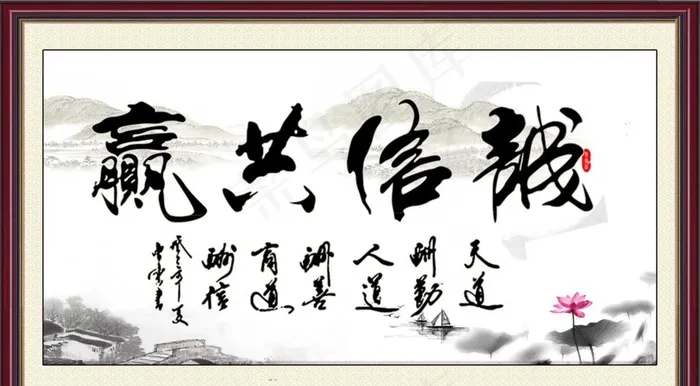 誠信共贏
天道
酬勤
人道
酬善
商道
酬信